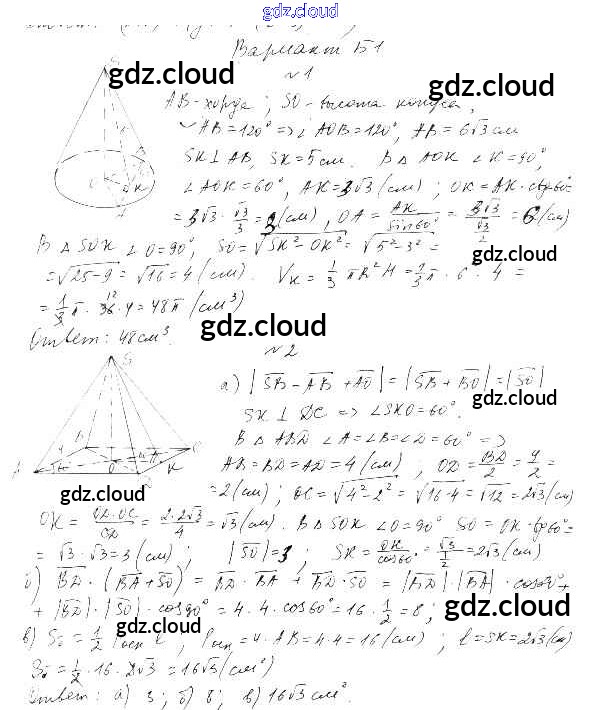 gdz.cloud
Вариант Б1
gdz.cloud gdz.cloud
№1
AB - хорда; SO - высота конуса,
◡AB = 120° => ∠AOB = 120°, AB = 6√3 см
SK ⊥ AB, SK = 5 см. В △ AOK ∠K = 90°,
∠AOK = 60°, AK = 3√3 (см); OK = AK · ctg 60° =
= 3√3 · √3/3 = 3 (см), OA = AK/sin 60° = 3√3/(√3/2) = 6 (см)
В △ SOK ∠O = 90°, SO = √(SK² - OK²) = √(5² - 3²) =
= √(25 - 9) = √16 = 4 (см). Vк = 1/3 πR²H = 1/3 π · 6 · 4 =
= 1/3 π · 36 · 4 = 48π (см³)
gdz.cloud gdz.cloud
Ответ: 48 см³.
№2
а) |SB - AB + AO| = |SB + BO| = |SO|
gdz.cloud
SK ⊥ DC => ∠SKO = 60°.
В △ ABD ∠A = ∠B = ∠D = 60° =>
AB = BD = AD = 4 (см); OD = BD/2 = 4/2 =
gdz.cloud
= 2 (см); OC = √(4² - 2²) = √(16 - 4) = √12 = 2√3 (см)
gdz.cloud
OK = OD·OC/CD = 2·2√3/4 = √3 (см). В △ SOK ∠O = 90° SO = OK · tg 60° =
= √3 · √3 = 3 (см); |SO| = 3; SK = OK/cos 60° = √3/(1/2) = 2√3 (см)
б) BD · (BA + SO) = BD · BA + BD · SO = |BD| · |BA| · cos 60° +
+ |BD| · |SO| · cos 90° = 4 · 4 · cos 60° = 16 · 1/2 = 8;
gdz.cloud
gdz.cloud
в) Sδ = 1/2 Pосн · l, Pосн = 4 · AB = 4 · 4 = 16 (см); l = SK = 2√3 (см)
Sδ = 1/2 · 16 · 2√3 = 16√3 (см²)
gdz.cloud
Ответ: а) 3; б) 8; в) 16√3 см².